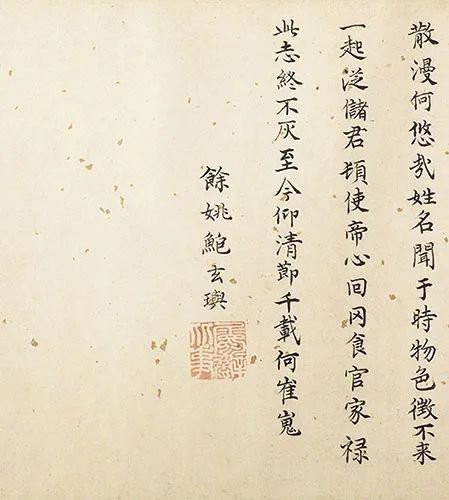 散漫何悠哉姓名聞于時物色徴不来
一起泛儲君頓使帝心回罔食官家禄
此志終不灰至今仰清節千載何崔嵬
餘姚鮑玄璵